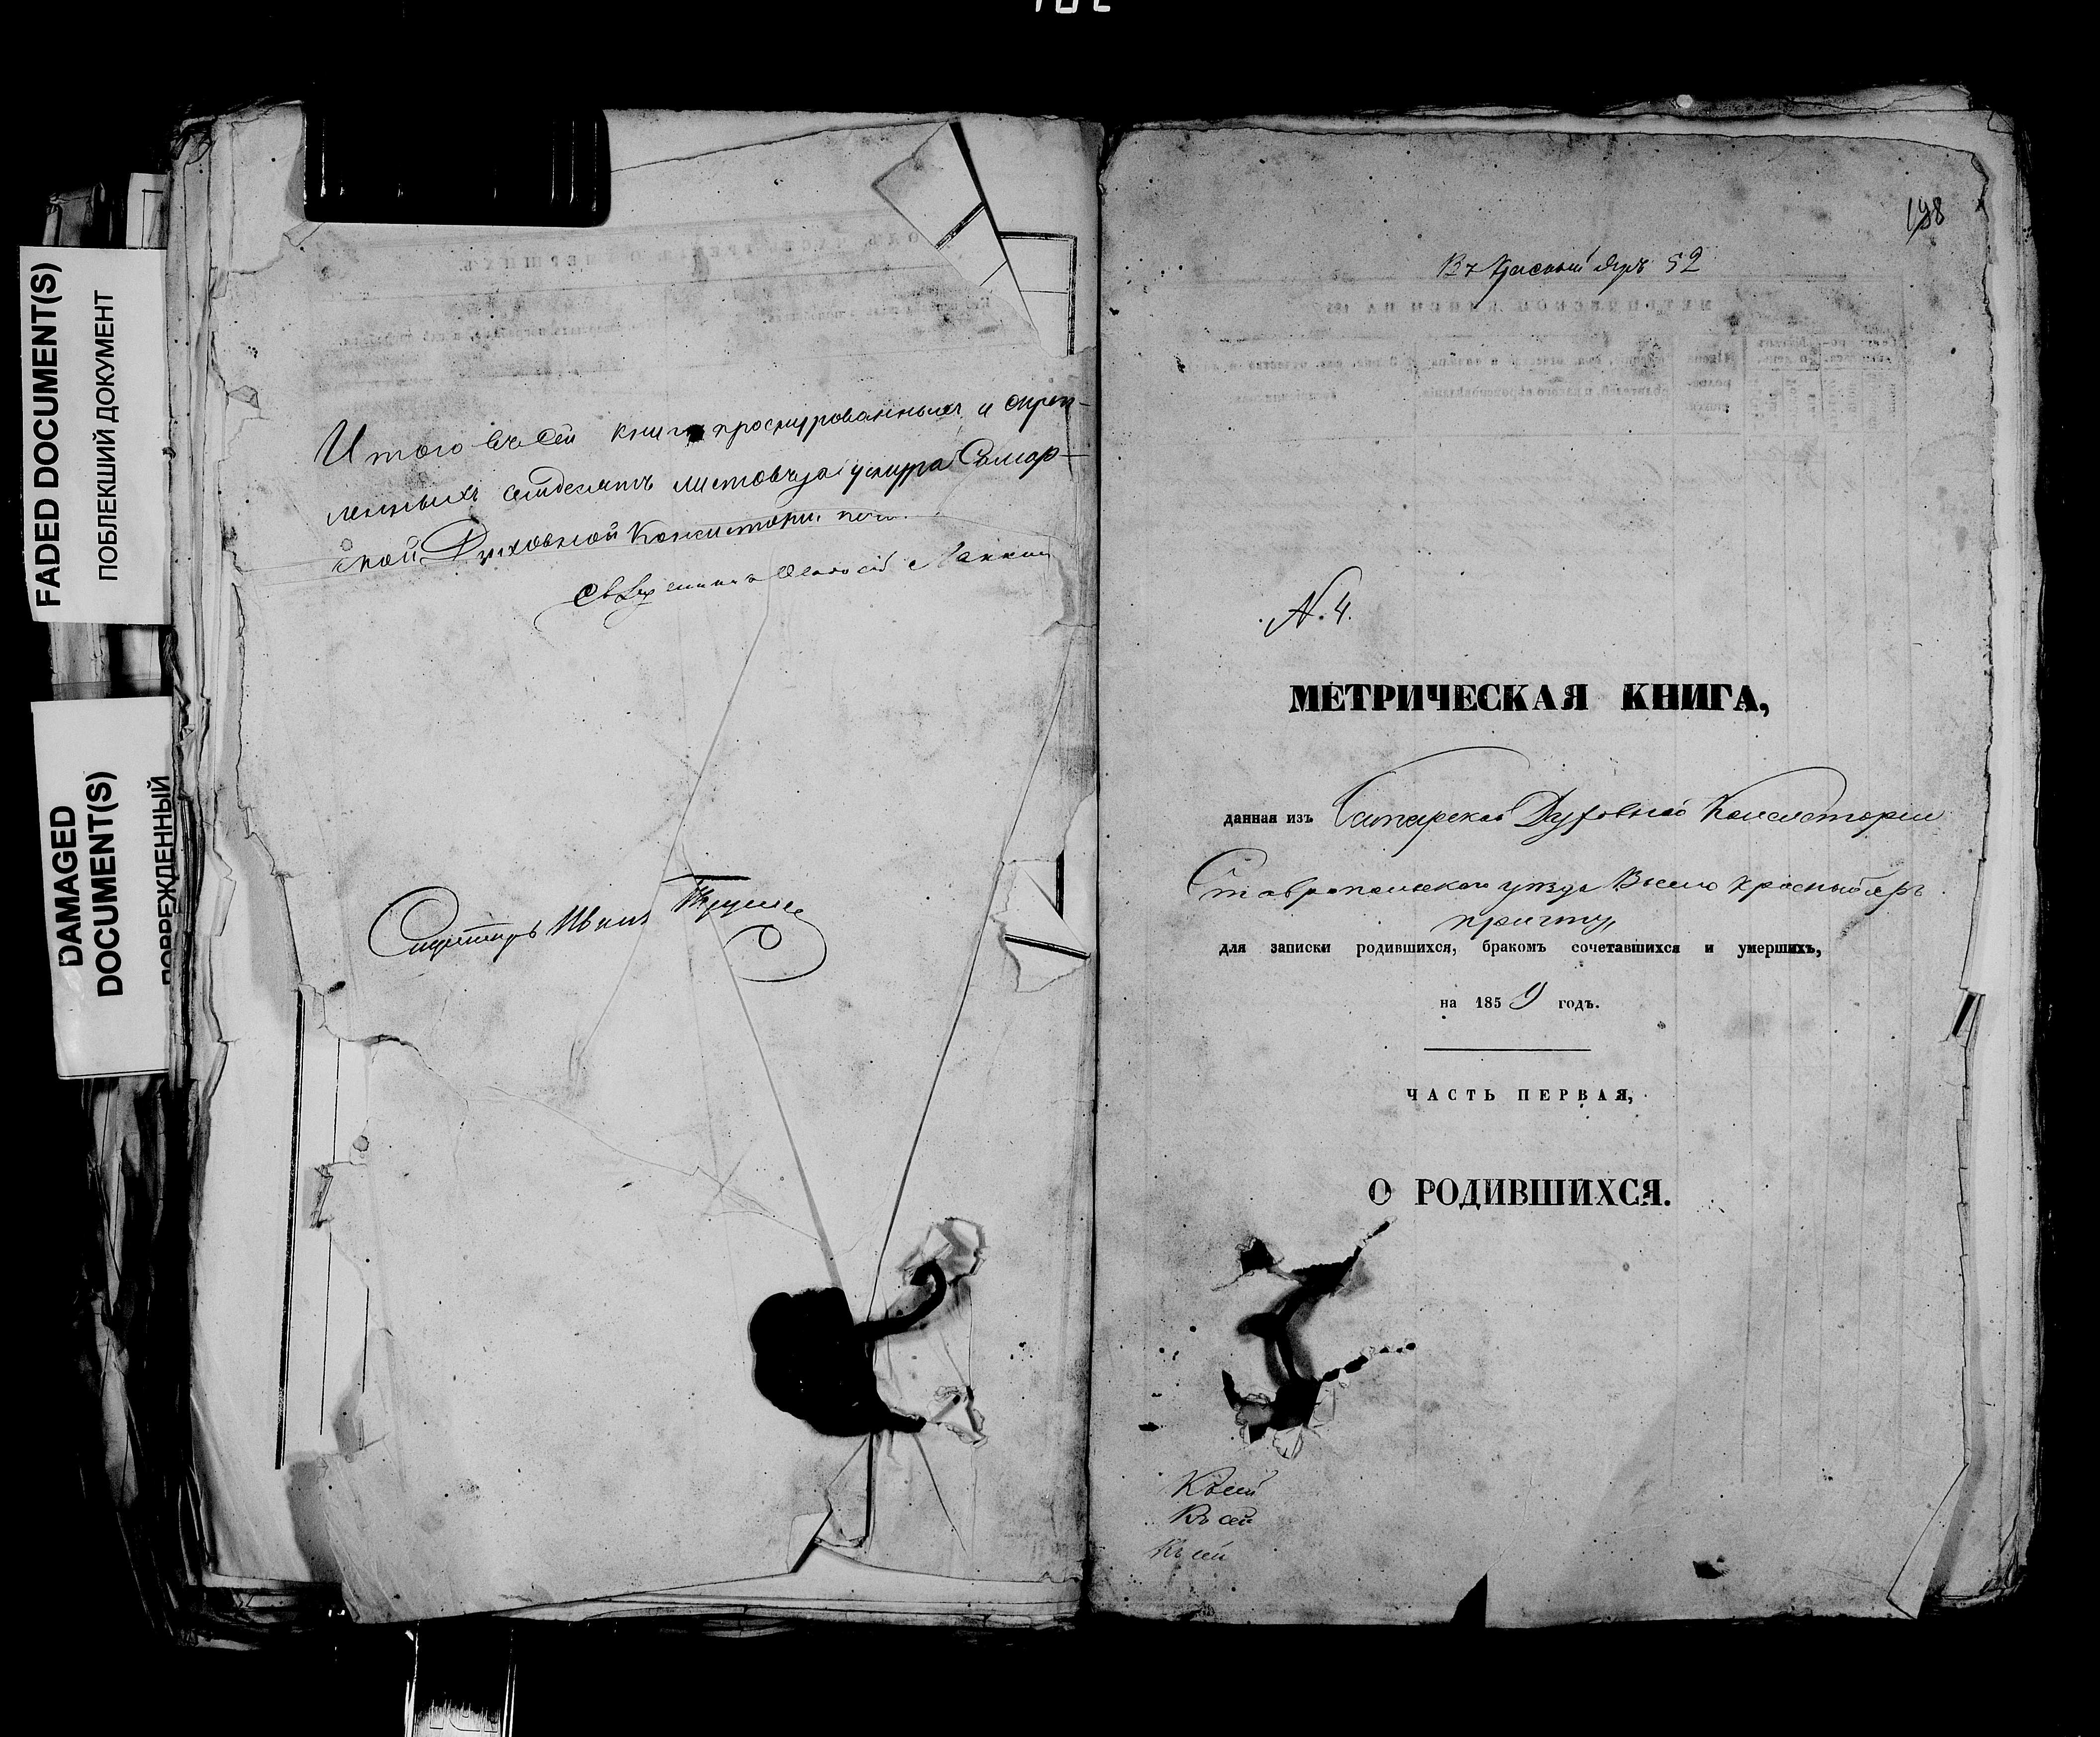 FADED DOCUMENT(S)
ПОБЛЕКШИЙ ДОКУМЕНТ
DAMAGED
DOCUMENT(S)
ПОВРЕЖДЕННЫЙ
Итого въ сей книгѣ прошнурованныхъ и скрѣп-
ленныхъ семдесятъ листовъ за шнура Самар-
ской Духовной Консисторіи
Священникъ
Секретарь Иванъ
198
Въ Красный Яръ 52
№. 4.
МЕТРИЧЕСКАЯ КНИГА,
данная изъ Самарской Духовной Консисторіи
Ставропольскаго уѣзда В село Красный Яръ
причту,
для записки родившихся, бракомъ сочетавшихся и умершихъ,
на 1859 годъ.
ЧАСТЬ ПЕРВАЯ,
О РОДИВШИХСЯ.
Къ сей
Къ сей
Къ сей